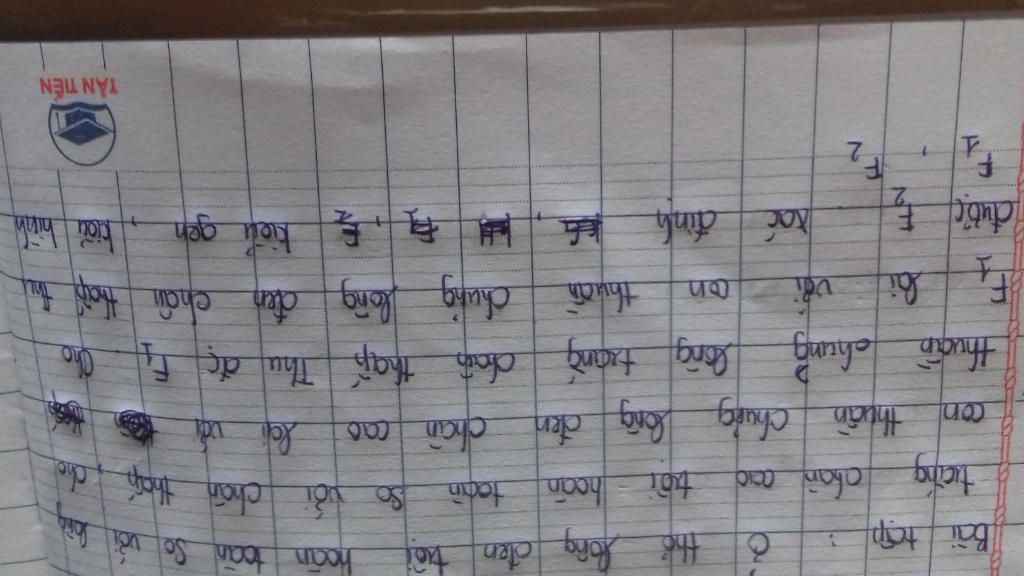 Bài tập : Ở thỏ lông đen trội hoàn toàn so với lông
trắng chân cao trội hoàn toàn so với chân thấp, cho
con thuần chủng lông đen chân cao lai với
thuần chủng lông trắng chân thấp Thu đc F1. Cho
F1 lai với con thuần chủng lông đen chân thấp thu
được F2 xác định F1, F2 kiểu gen, kiểu hình
F1, F2
TÂN TIẾN